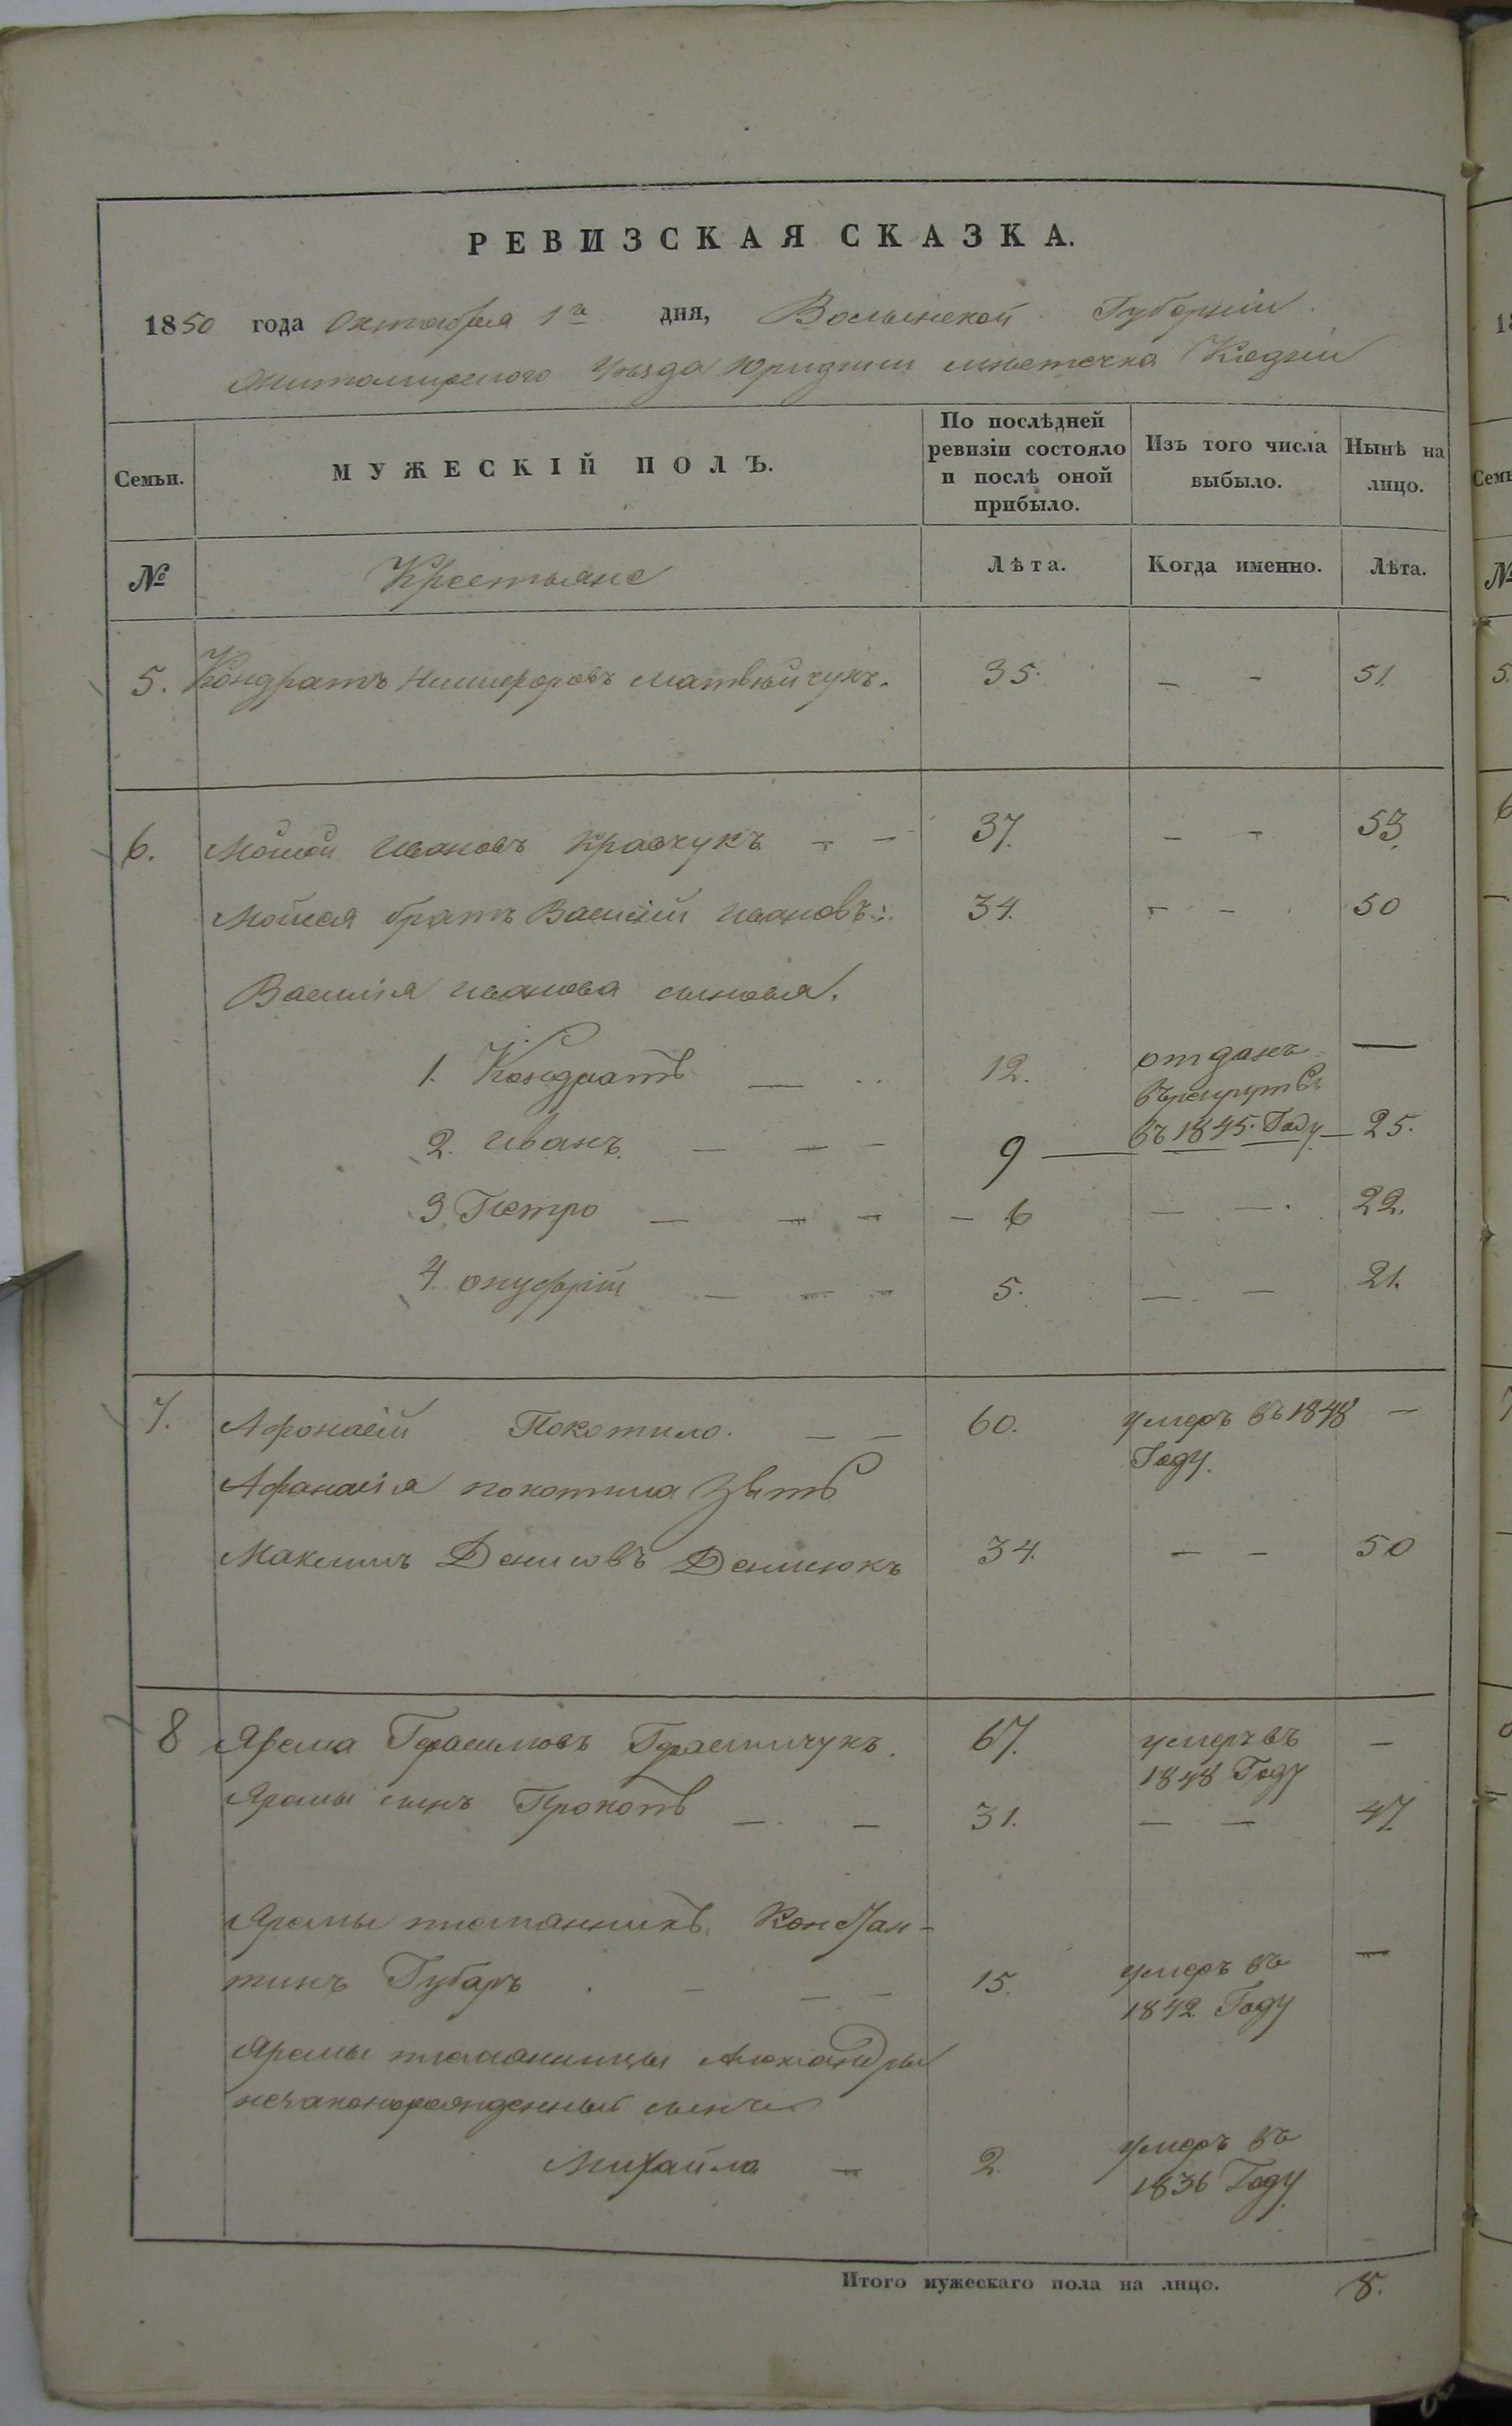 РЕВИЗСКАЯ СКАЗКА.
1850 года Октября 1го дня, Волынской Губерніи
Житомирского Уѣзда Юридики мѣстечка Кодни
Семьи. МУЖЕСКІЙ ПОЛЪ. По послѣдней ревизіи состояло и послѣ оной прибыло. Изъ того числа выбыло. Нынѣ на лицо.
№ Крестьяне Лѣта. Когда именно. Лѣта.
5. Кондратъ Никифоровъ Матвѣйчукъ. 35. — — 51.
6. Мойсей Ивановъ Кравчукъ — — 37. — — 53.
Мойсея братъ Василій Ивановъ 34. — — 50
Василія Иванова сыновья.
1. Кондратъ — 12. отданъ —
въ рекруты
2. Иванъ — — — 9 — въ 1845. Году — 25.
3. Петро — — — — 6 — — 22.
4. Онуфрій — — — 5. — — 21.
7. Афонасій Покотило. — — 60. умеръ въ 1848 —
Году.
Афанасія Покотила Зять
Максимъ Денисовъ Денисюкъ 34. — — 50
8 Ярема Герасимовъ Герасимчукъ. 67. умеръ въ —
1848 Году
Яремы сынъ Прокопъ — — 31. — — 47.
Яремы племянникъ Констан-
тинъ Губаръ — — — 15. умеръ въ —
1842 Году
Яремы племянницы Александры
незаконорожденный сынъ
Михайла — 2. умеръ въ
1836 Году
Итого мужескаго пола на лицо. 8.